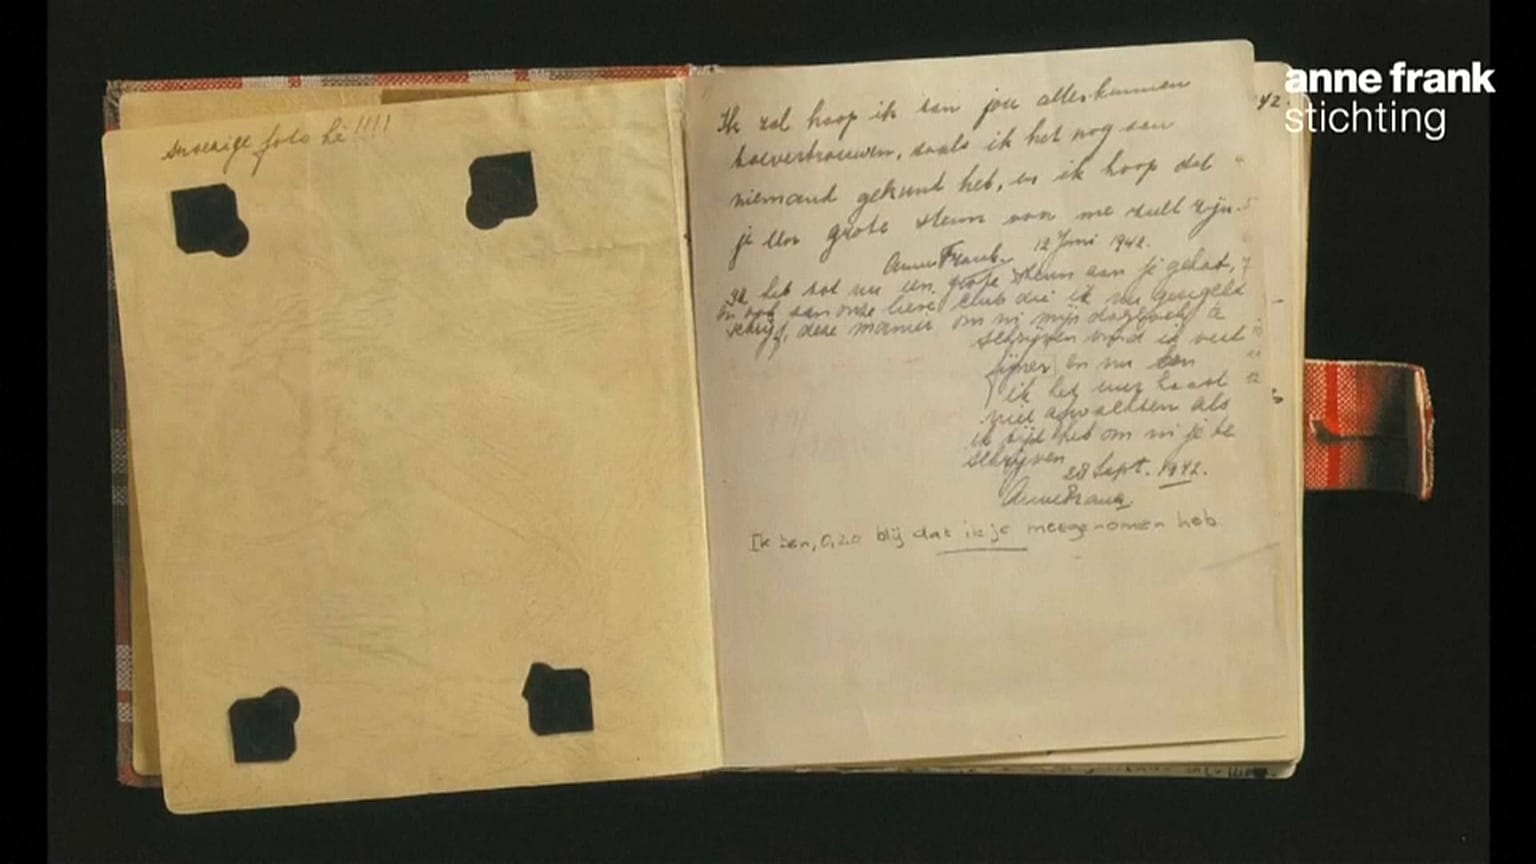 snoezige foto hè!!!!
Ik zal hoop ik aan jou alles kunnen
toevertrouwen, zoals ik het nog aan
niemand gekund heb, en ik hoop dat
je een grote steun voor me zult zijn.
Anne Frank. 12 Juni 1942.
Ik heb tot nu een grote steun aan je gehad,
en ook aan onze lieve club die ik nu geregeld
schrijf, deze manier om in mijn dagboek te
schrijven vind ik veel
fijner en nu kan
ik het uur haast
niet afwachten als
ik tijd heb om in je te
schrijven
28 Sept. 1942.
Anne Frank.
Ik ben, o, zo blij dat ik je meegenomen heb
42.
anne frank
stichting